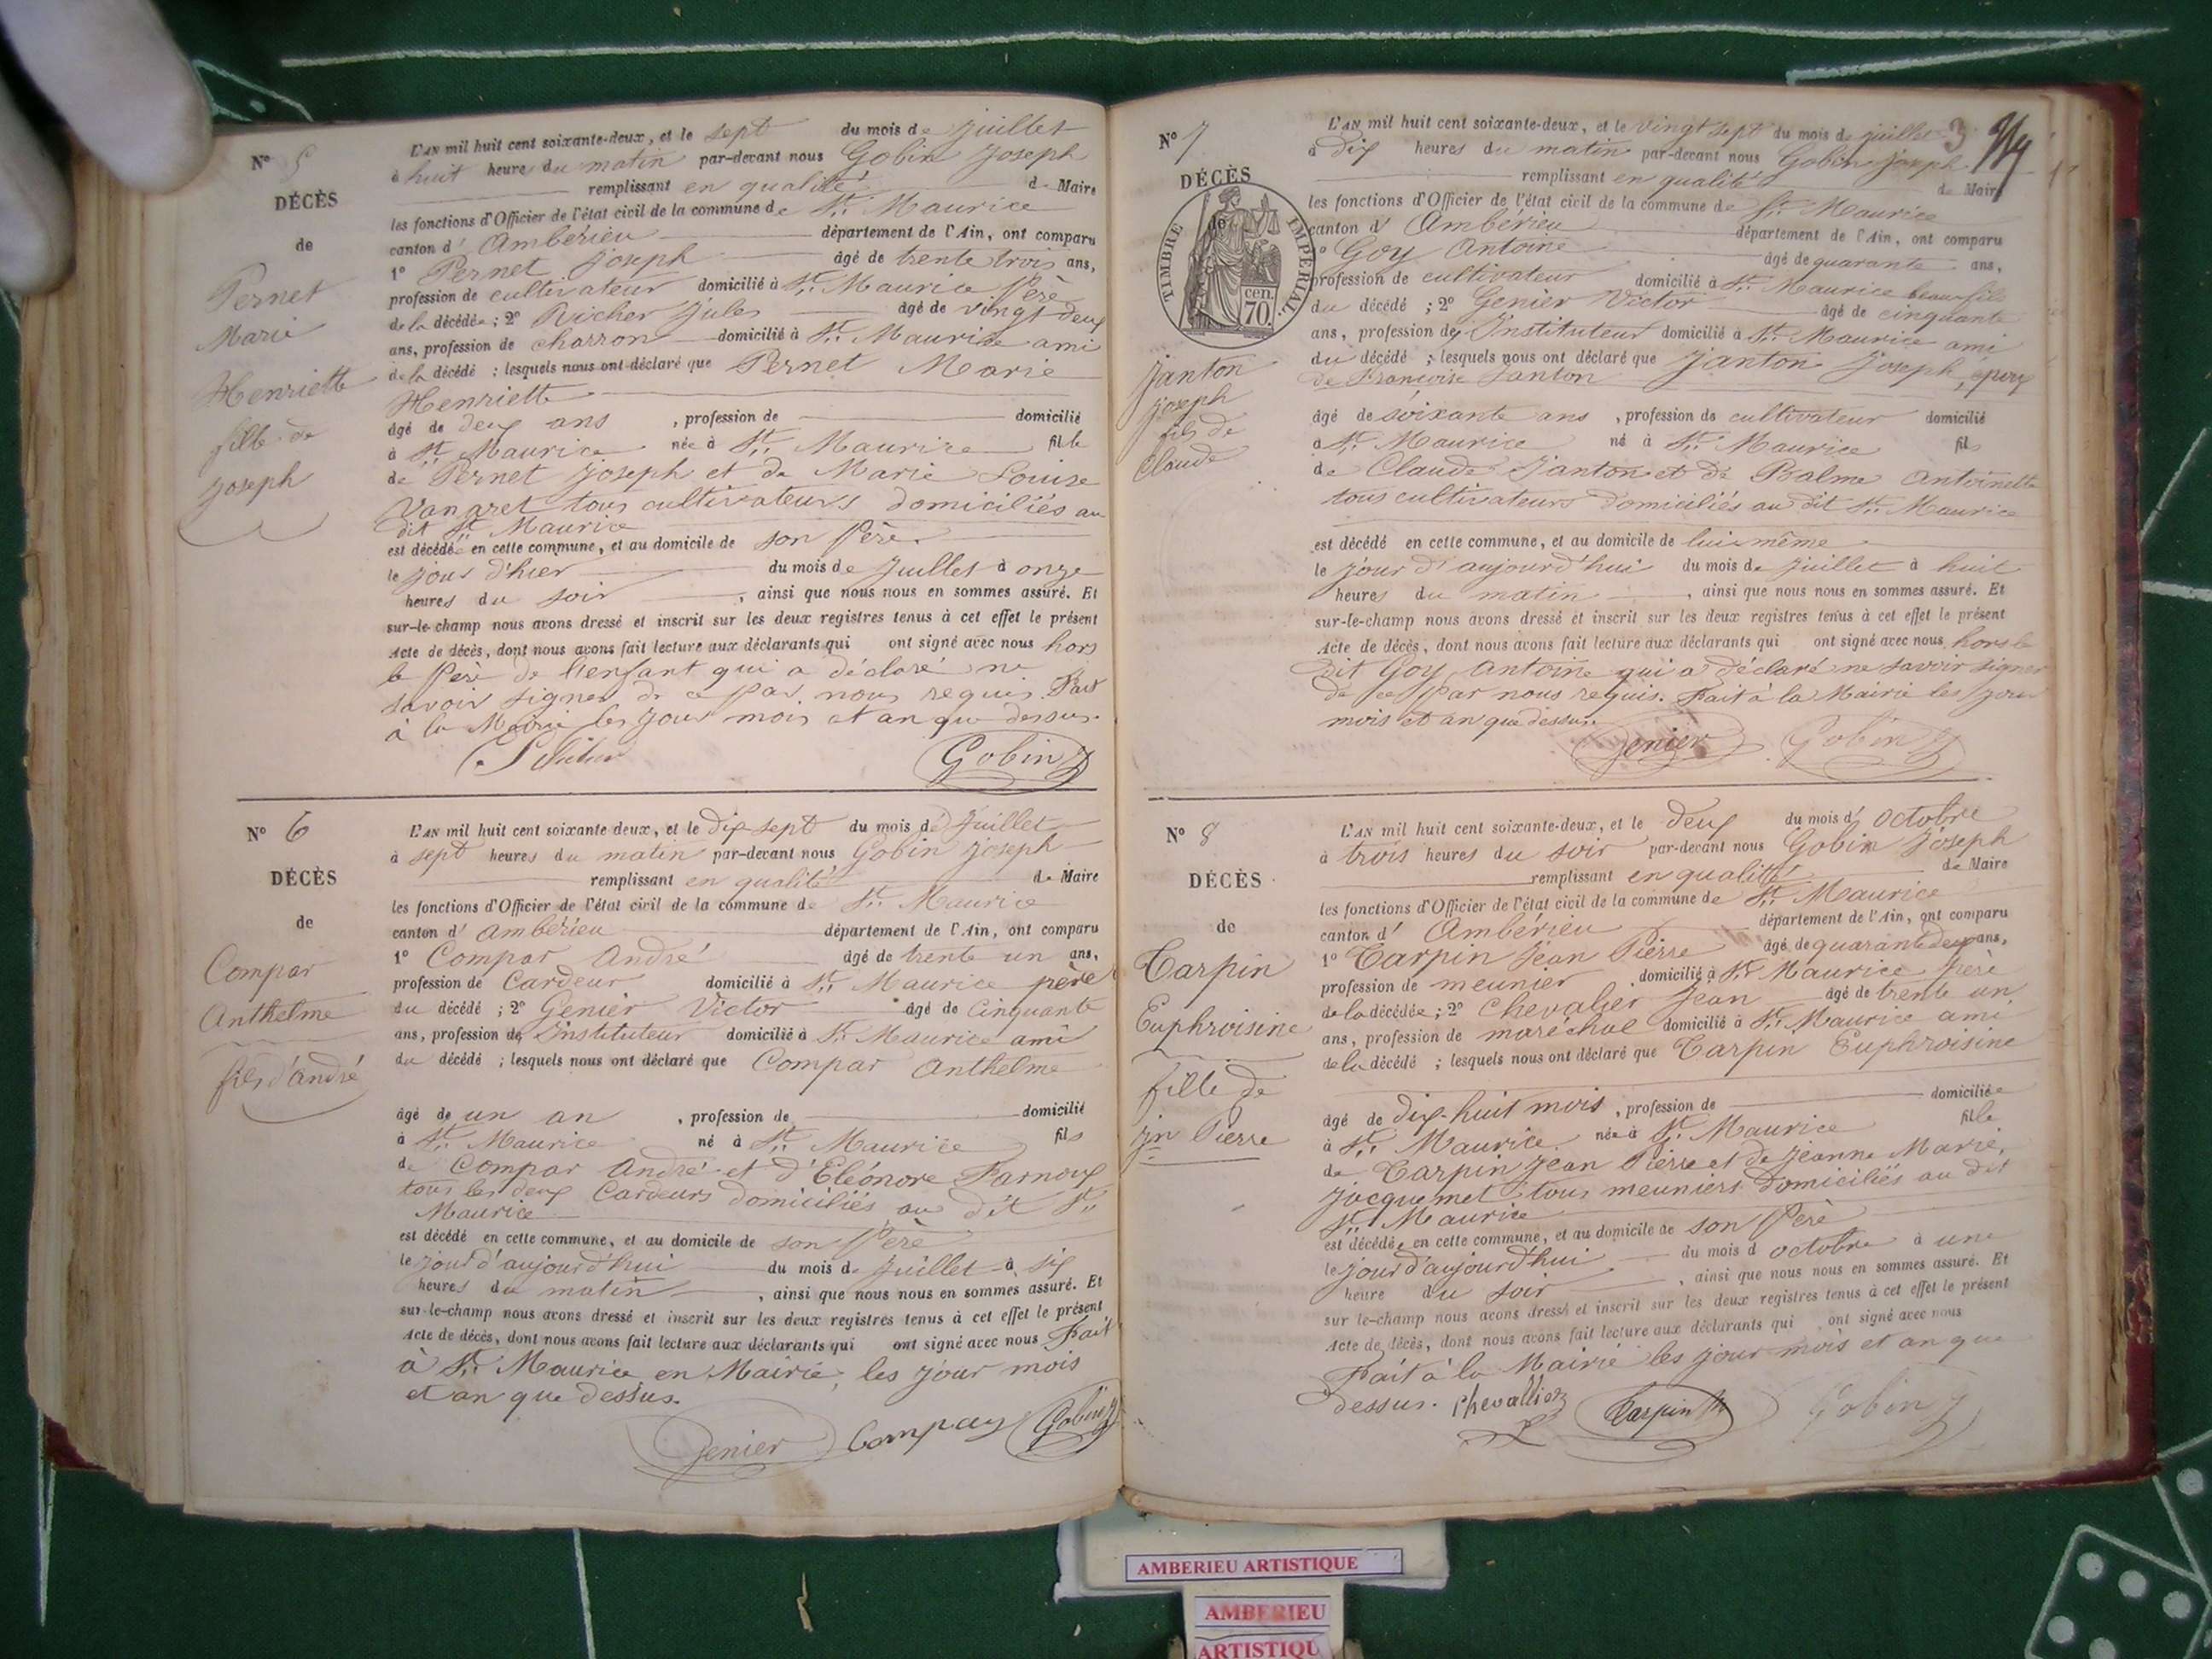 N° 5
DÉCÈS
de
Pernet
Marie
Henriette
fille de
Joseph
L'AN mil huit cent soixante-deux, et le sept du mois de Juillet
à huit heures du matin par-devant nous Gobin Joseph
remplissant en qualité de Maire
les fonctions d'Officier de l'état civil de la commune de St. Maurice
canton d' Ambérieu département de l'Ain, ont comparu
1° Pernet Joseph âgé de trente trois ans,
profession de cultivateur domicilié à St. Maurice Père
de la décédée ; 2° Richer Jules âgé de vingt deux
ans, profession de charron domicilié à St. Maurice ami
de la décédé ; lesquels nous ont déclaré que Pernet Marie
Henriette
âgé de deux ans , profession de domicilié
à St. Maurice née à St. Maurice fille
de Pernet Joseph et de Marie Louise
Vangret tous cultivateurs domiciliés au
dit St. Maurice
est décédée en cette commune, et au domicile de son Père
le jour d'hier du mois de Juillet à onze
heures du soir , ainsi que nous nous en sommes assuré. Et
sur-le-champ nous avons dressé et inscrit sur les deux registres tenus à cet effet le présent
Acte de décès, dont nous avons fait lecture aux déclarants qui ont signé avec nous hors
le Père de l'enfant qui a déclaré ne
savoir signer de ce par nous requis. Fait
à la Mairie les jour mois et an que dessus.
Gobin J
N° 6
DÉCÈS
de
Compar
Anthelme
fils d'André
L'AN mil huit cent soixante-deux, et le dix-sept du mois de Juillet
à sept heures du matin par-devant nous Gobin Joseph
remplissant en qualité de Maire
les fonctions d'Officier de l'état civil de la commune de St. Maurice
canton d' Ambérieu département de l'Ain, ont comparu
1° Compar André âgé de trente un ans,
profession de Cardeur domicilié à St. Maurice père
du décédé ; 2° Genier Victor âgé de Cinquante
ans, profession de Instituteur domicilié à St. Maurice ami
du décédé ; lesquels nous ont déclaré que Compar Anthelme
âgé de un an , profession de domicilié
à St. Maurice né à St. Maurice fils
de Compar André et d'Eléonore Farnoux
tous les deux Cardeurs domiciliés au dit St.
Maurice
est décédé en cette commune, et au domicile de son Père
le jour d'aujourd'hui du mois de Juillet à six
heures du matin , ainsi que nous nous en sommes assuré. Et
sur-le-champ nous avons dressé et inscrit sur les deux registres tenus à cet effet le présent
Acte de décès, dont nous avons fait lecture aux déclarants qui ont signé avec nous Fait
à St. Maurice en Mairie, les jour mois
et an que dessus.
Genier Compar Gobin J
3
N° 7
DÉCÈS
de
TIMBRE IMPERIAL
70 cen.
Janton
Joseph
fils de
Claude
L'AN mil huit cent soixante-deux, et le vingt sept du mois de juillet
à dix heures du matin par-devant nous Gobin Joseph
remplissant en qualité de Maire
les fonctions d'Officier de l'état civil de la commune de St. Maurice
canton d' Ambérieu département de l'Ain, ont comparu
1° Goy Antoine âgé de quarante ans,
profession de cultivateur domicilié à St. Maurice beau-fils
du décédé ; 2° Genier Victor âgé de cinquante
ans, profession de Instituteur domicilié à St. Maurice ami
du décédé ; lesquels nous ont déclaré que Janton Joseph, époux
de Françoise Janton
âgé de soixante ans , profession de cultivateur domicilié
à St. Maurice né à St. Maurice fils
de Claude Janton et de Balme Antoinette
tous cultivateurs domiciliés au dit St. Maurice
est décédé en cette commune, et au domicile de lui-même
le jour d'aujourd'hui du mois de Juillet à huit
heures du matin , ainsi que nous nous en sommes assuré. Et
sur-le-champ nous avons dressé et inscrit sur les deux registres tenus à cet effet le présent
Acte de décès, dont nous avons fait lecture aux déclarants qui ont signé avec nous hors le
dit Goy Antoine qui a déclaré ne savoir signer
de ce par nous requis. Fait à la Mairie les jour
mois et an que dessus.
Genier Gobin J
N° 8
DÉCÈS
de
Carpin
Euphroisine
fille de
Jn Pierre
L'AN mil huit cent soixante-deux, et le deux du mois d' octobre
à trois heures du soir par-devant nous Gobin Joseph
remplissant en qualité de Maire
les fonctions d'Officier de l'état civil de la commune de St. Maurice
canton d' Ambérieu département de l'Ain, ont comparu
1° Carpin Jean Pierre âgé de quarante deux ans,
profession de meunier domicilié à St. Maurice père
de la décédée ; 2° Chevalier Jean âgé de trente un
ans, profession de maréchal domicilié à St. Maurice ami
de la décédé ; lesquels nous ont déclaré que Carpin Euphroisine
âgé de dix-huit mois , profession de domiciliée
à St. Maurice née à St. Maurice fille
de Carpin Jean Pierre et de Jeanne Marie,
Jacquemet tous meuniers domiciliés au dit
St. Maurice
est décédée en cette commune, et au domicile de son Père
le jour d'aujourd'hui du mois d octobre à une
heure du soir , ainsi que nous nous en sommes assuré. Et
sur-le-champ nous avons dressé et inscrit sur les deux registres tenus à cet effet le présent
Acte de décès, dont nous avons fait lecture aux déclarants qui ont signé avec nous
Fait à la Mairie les jour mois et an que
dessus. Chevallier Carpin Gobin J
AMBERIEU ARTISTIQUE
AMBERIEU
ARTISTIQU